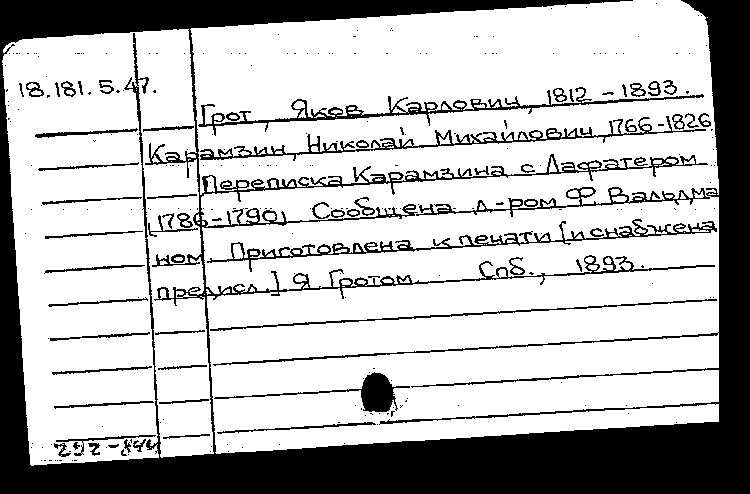 18.181.5.47.
Грот, Яков Карлович, 1812 - 1893.
Карамзин, Николай Михайлович, 1766-1826
Переписка Карамзина с Лафатером
[1786-1790] Сообщена д-ром Ф. Вальдма
ном. Приготовлена к печати [и снабжена
предисл.] Я Гротом. Спб., 1893.